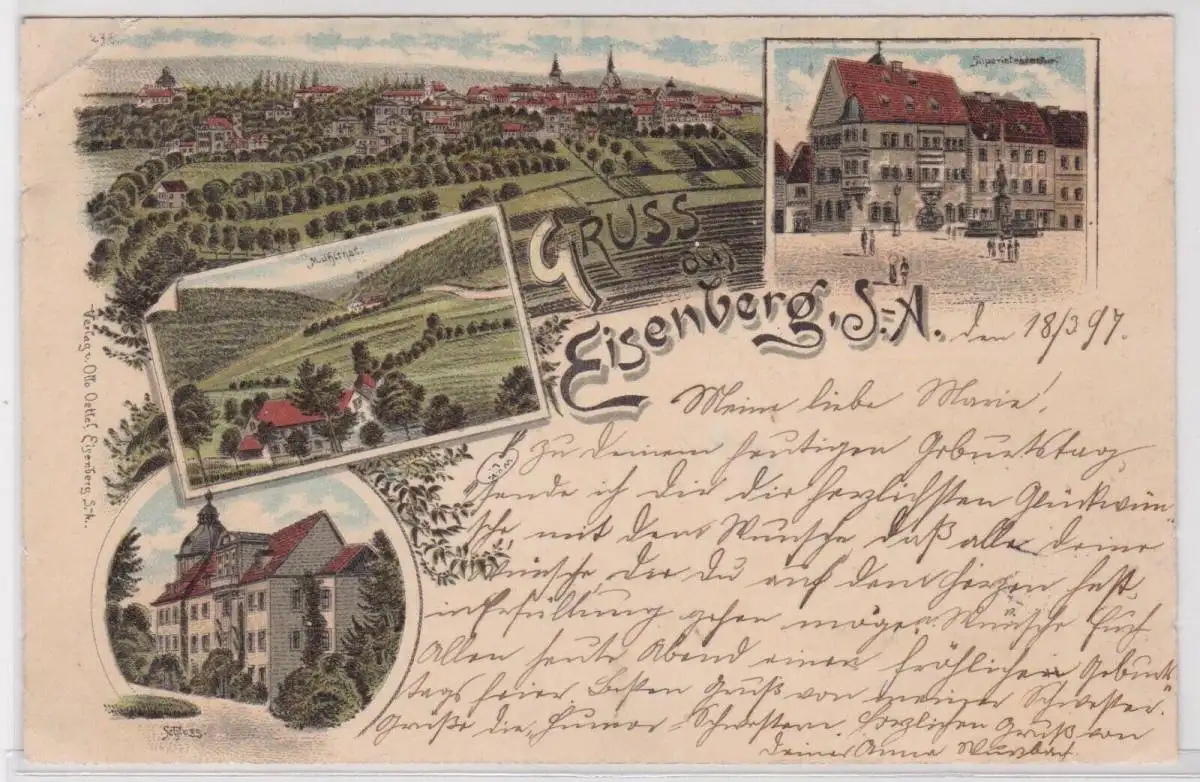 236
Superintendentur
GRUSS
aus
Eisenberg, S.-A.
Mühlthal.
Schloss
Verlag v. Otto Oettel, Eisenberg, S.-A.
den 18/3 97.
Meine liebe Marie!
Zu Deinem heutigen Geburtstag
sende ich Dir die herzlichsten Glückwün-
sche, mit dem Wunsche daß alle Deine
Wünsche, die Du auf dem Herzen hast,
in Erfüllung gehen mögen. Wünsche Euch
Allen heute Abend einen fröhlichen Geburts-
tagsfeier. Besten Gruß von meiner Schwester.
Grüße die Schwestern. Herzlichen Gruß von
Deiner Anna Wurzbach